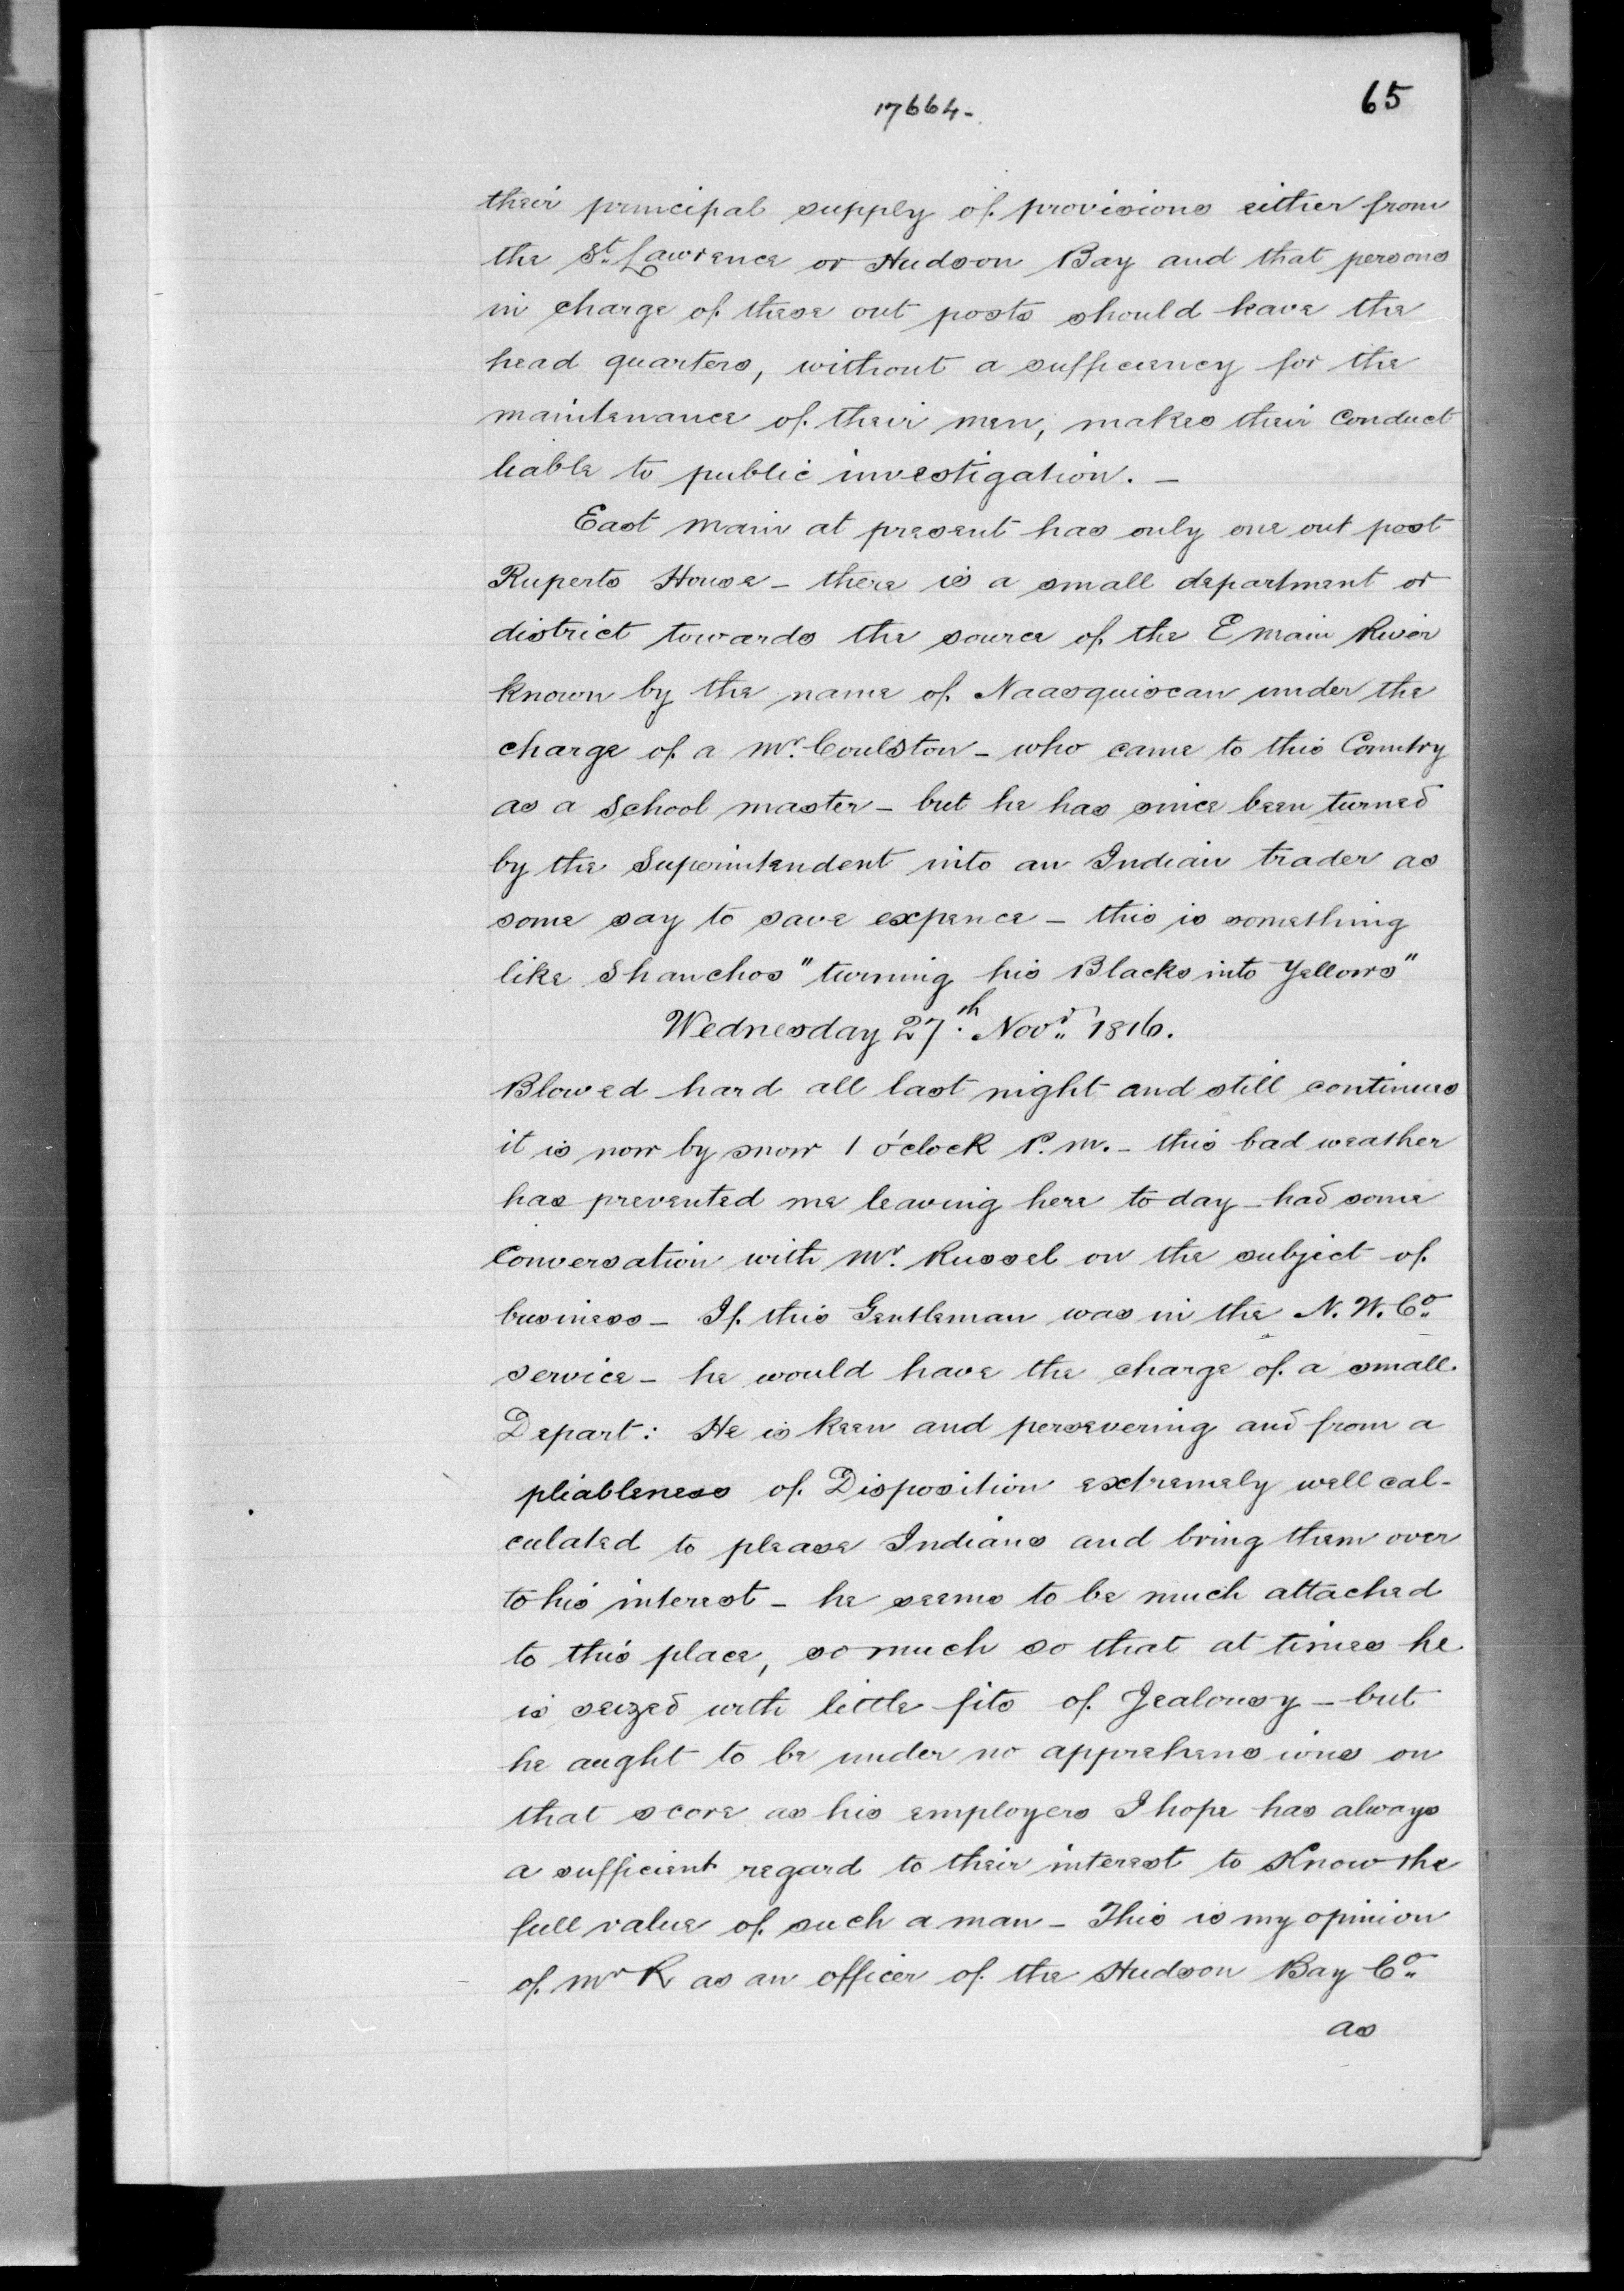 17664-
65
their principal supply of provisions either from
the St. Lawrence or Hudson Bay and that persons
in charge of these out posts should leave the
head quarters, without a sufficiency for the
maintenance of their men, makes their conduct
liable to public investigation. -
East main at present has only one out post
Ruperts House - there is a small department or
district towards the source of the E main River
known by the name of Naasquiscan under the
charge of a Mr. Coulston - who came to this Country
as a School master - but he has since been turned
by the Superintendent into an Indian trader as
some say to save expence - this is something
like Shanchos "turning his Blacks into Yellows"
Wednesday 27th. Novr. 1816.
Blowed hard all last night and still continues
it is now by snow 1 o'clock P.M. - this bad weather
has prevented me leaving here to day - had some
Conversation with Mr. Russel on the subject of
business - If this Gentleman was in the N. W. Co.
service - he would have the charge of a small
Depart: He is keen and persevering and from a
pliableness of Disposition extremely well cal-
culated to please Indians and bring them over
to his interest - he seems to be much attached
to this place, so much so that at times he
is seized with little fits of Jealousy - but
he aught to be under no apprehensions on
that score as his employers I hope has always
a sufficient regard to their interest to Know the
full value of such a man - This is my opinion
of Mr R as an officer of the Hudson Bay Co.
as